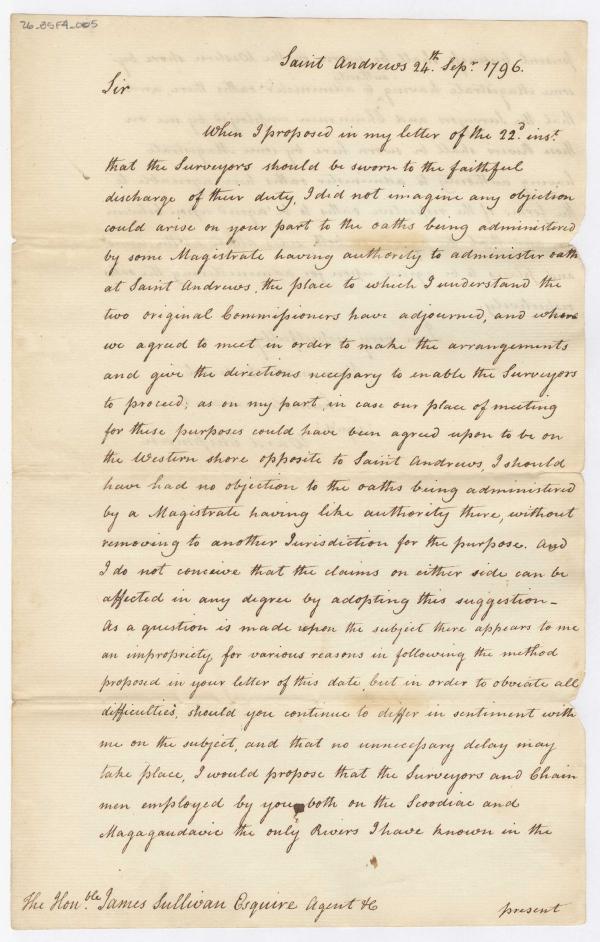 26_B5F4_005
Saint Andrews 24th. Sepr. 1796.
Sir
When I proposed in my letter of the 22d. inst.
that the Surveyors should be sworn to the faithful
discharge of their duty, I did not imagine any objection
could arise on your part to the oaths being administered
by some Magistrate having authority to administer oath
at Saint Andrews, the place to which I understand the
two original Commissioners have adjourned, and where
we agreed to meet in order to make the arrangements
and give the directions necessary to enable the Surveyors
to proceed; as on my part, in case our place of meeting
for these purposes could have been agreed upon to be on
the Western shore opposite to Saint Andrews, I should
have had no objection to the oaths being administered
by a Magistrate having like authority there, without
removing to another Jurisdiction for the purpose. And
I do not conceive that the claims on either side can be
affected in any degree by adopting this suggestion—
As a question is made upon the subject there appears to me
an impropriety, for various reasons in following the method
proposed in your letter of this date, but in order to obviate all
difficulties, should you continue to differ in sentiment with
me on the subject, and that no unnecessary delay may
take place, I would propose that the Surveyors and Chain
men employed by you both on the Scoodiac and
Magagaudavic the only Rivers I have known in the
The Honble. James Sullivan Esquire Agent &c
present